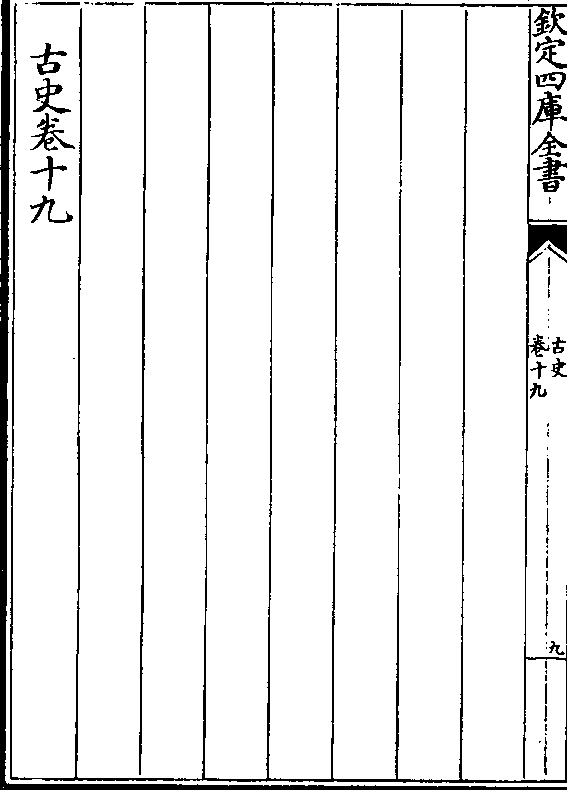 欽定四庫全書
古史
卷十九
九
古史卷十九